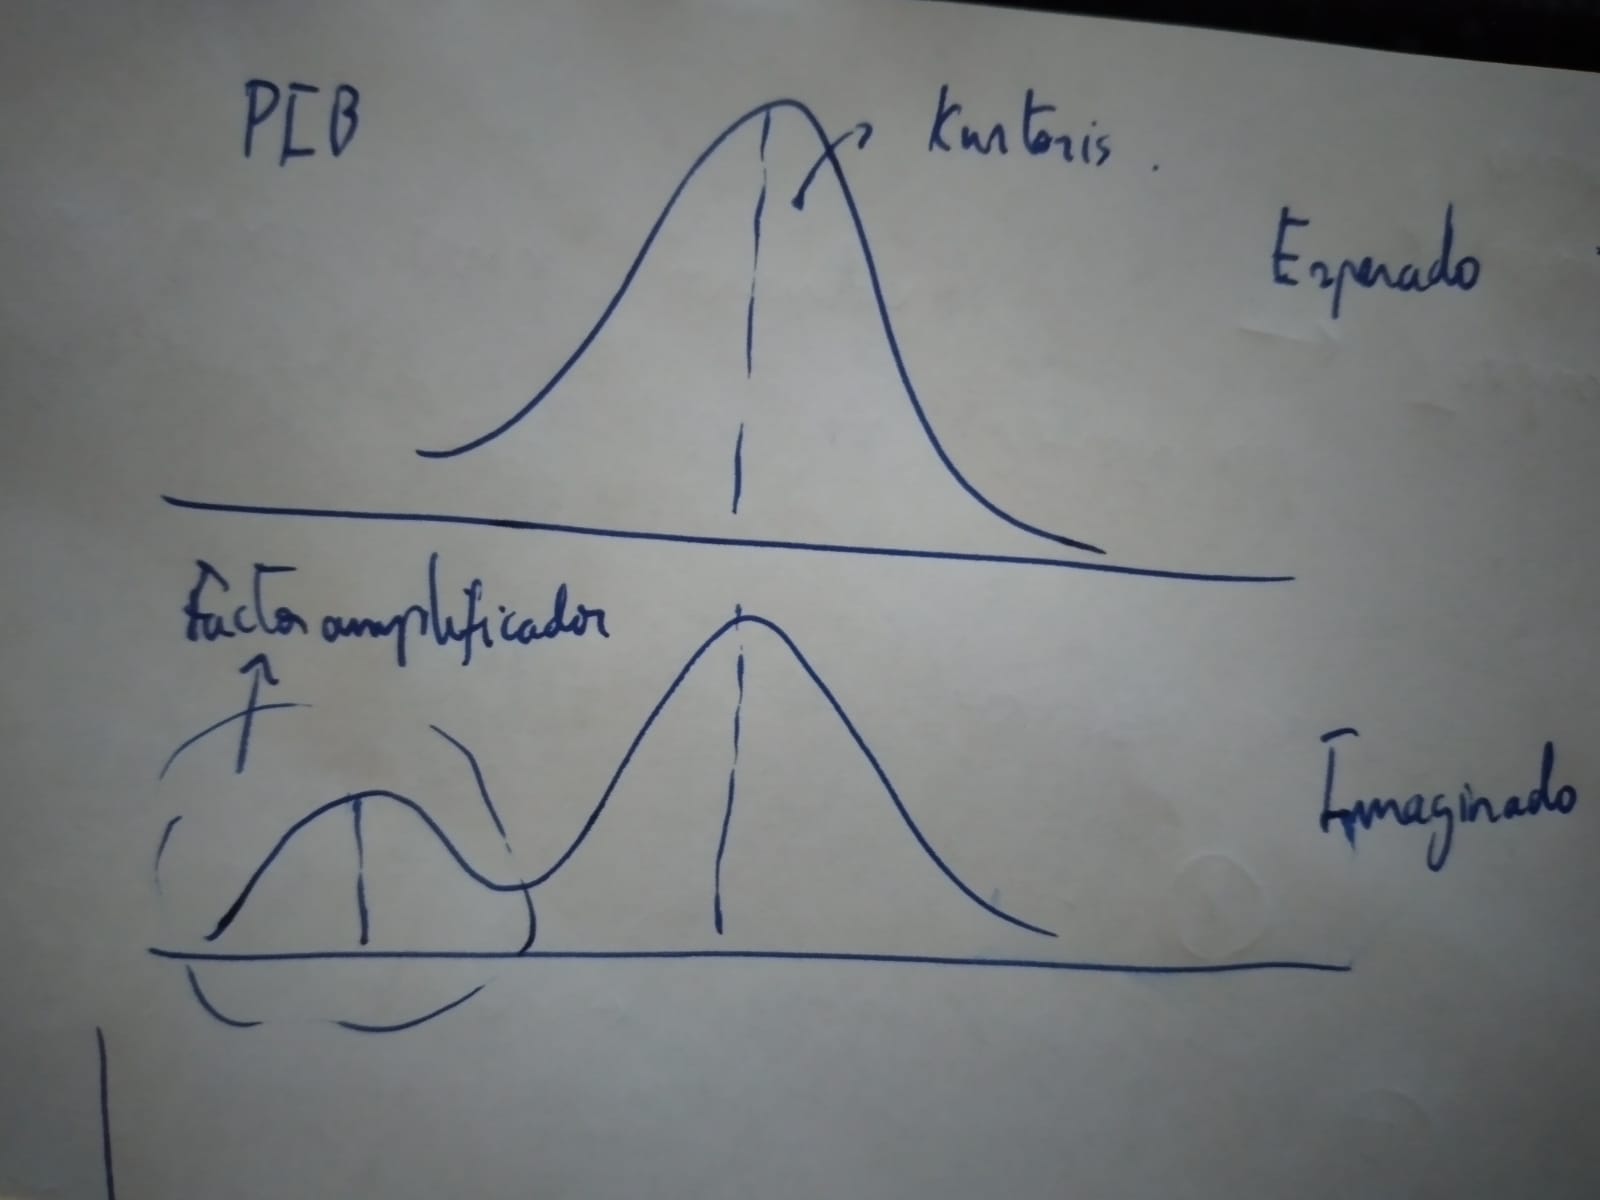 PIB
Kurtosis.
Esperado
Factor amplificador
Imaginado